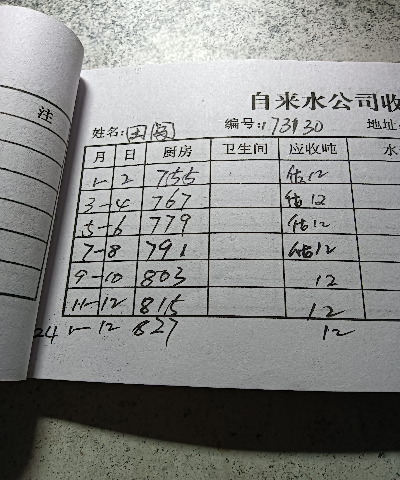 注
自来水公司收
姓名: 编号: 173130 地址:
月 日 厨房 卫生间 应收吨 水
1-2 755 估12
3-4 767 估12
5-6 779 估12
7-8 791 估12
9-10 803 12
11-12 815 12
24 1-12 827 12